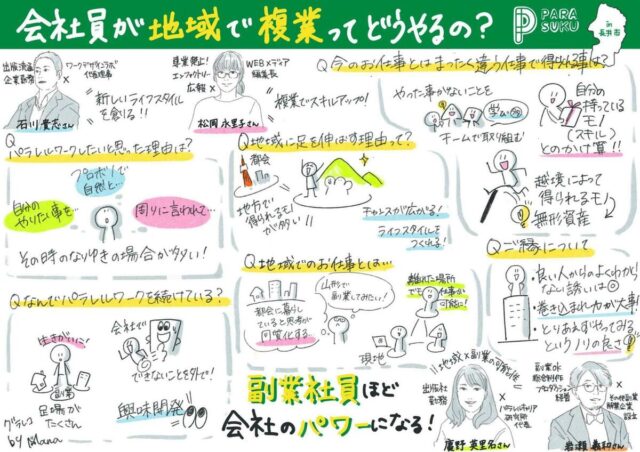 会社員が地域で複業ってどうやるの？
PARA SUKU
in 長井市
出版流通企業勤務
×
ワークデザインラボ代表理事
石川 貴志さん
新しいライフスタイルを創る!!
専業禁止!
エンファクトリー
広報 ×
WEBメディア編集長
松岡 永里子さん
複業でスキルアップ！
Q 今のお仕事とはまったく違う仕事で得られる事は?
やった事がないことを
学ぶ
チームで取り組む！
自分の持っているモノ
(スキル)
とのかけ算!!
越境によって得られるモノ
無形資産
Q パラレルワークしたいと思った理由は?
プロボノで自然と…
自分のやりたい事を…
周りに言われて…
その時のなりゆきの場合が多い！
Q 地域に足を伸ばす理由って？
都会
地方で得られるモノが多い!!
チャンスが広がる！
ライフスタイルをつくれる！
Q 地域でのお仕事とは…
都会に暮らしていると思考が同質化する
山形で副業してみたい！
離れた場所でも仕事が可能に！
現地
Q ご縁について
・良い人からのよくわからない誘いは◎
・巻き込まれ力が大事!
・とりあえずやってみるというノリの良さ
Q なんでパラレルワークを続けている？
生きがいに！
副業
足場がたくさん
会社でできないことを外で！
興味開発
グラレコ
by Mana
副業社員ほど
会社のパワーになる！
地域×副業の可能性
出版社勤務
×
パラレルキャリア研究所代表
慶野 英里名さん
総合制作プロダクション経営
×
岩瀬 義和さん